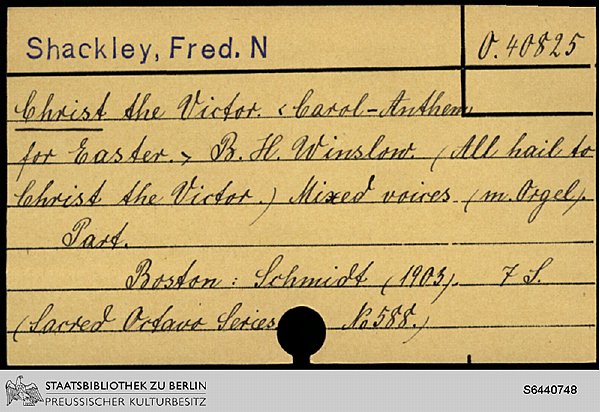 Shackley, Fred. N
O. 40825
Christ the Victor. < Carol-Anthem
for Easter. > B. H. Winslow. (All hail to
Christ the Victor.) Mixed voices (m. Orgel).
Part.
Boston: Schmidt (1903). 7 S.
(Sacred Octavo Series No 588.)
STAATSBIBLIOTHEK ZU BERLIN
PREUSSISCHER KULTURBESITZ
S6440748